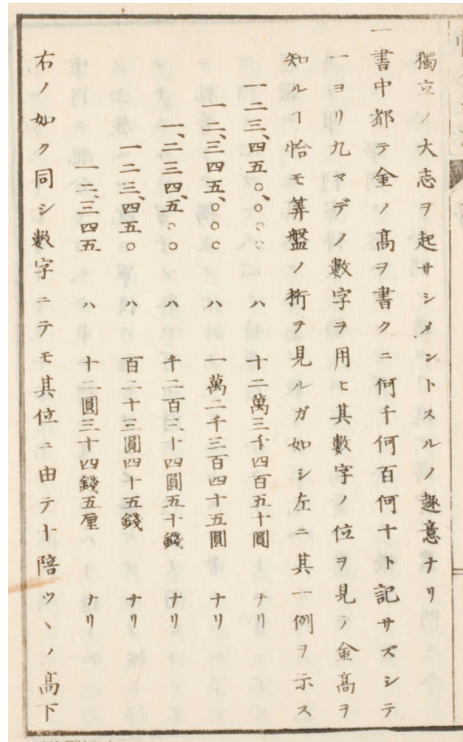 獨立ノ大志ヲ起サシメントスルノ趣意ナリ
一書中都テ金ノ高ヲ書クニ何千何百何十ト記サズシテ
一ヨリ九マデノ數字ヲ用ヒ其數字ノ位ヲ見テ金高ヲ
知ルヿ恰モ算盤ノ桁ヲ見ルガ如シ左ニ其一例ヲ示ス
一二三、四五〇、〇〇〇 ハ 十二萬三千四百五十圓 ナリ
一二、三四五、〇〇〇 ハ 一萬二千三百四十五圓 ナリ
一、二三四、五〇〇 ハ 千二百三十四圓五十錢 ナリ
一二三、四五〇 ハ 百二十三圓四十五錢 ナリ
一二、三四五 ハ 十二圓三十四錢五厘 ナリ
右ノ如ク同シ數字ニテモ其位ニ由テ十陪ツヽノ高下